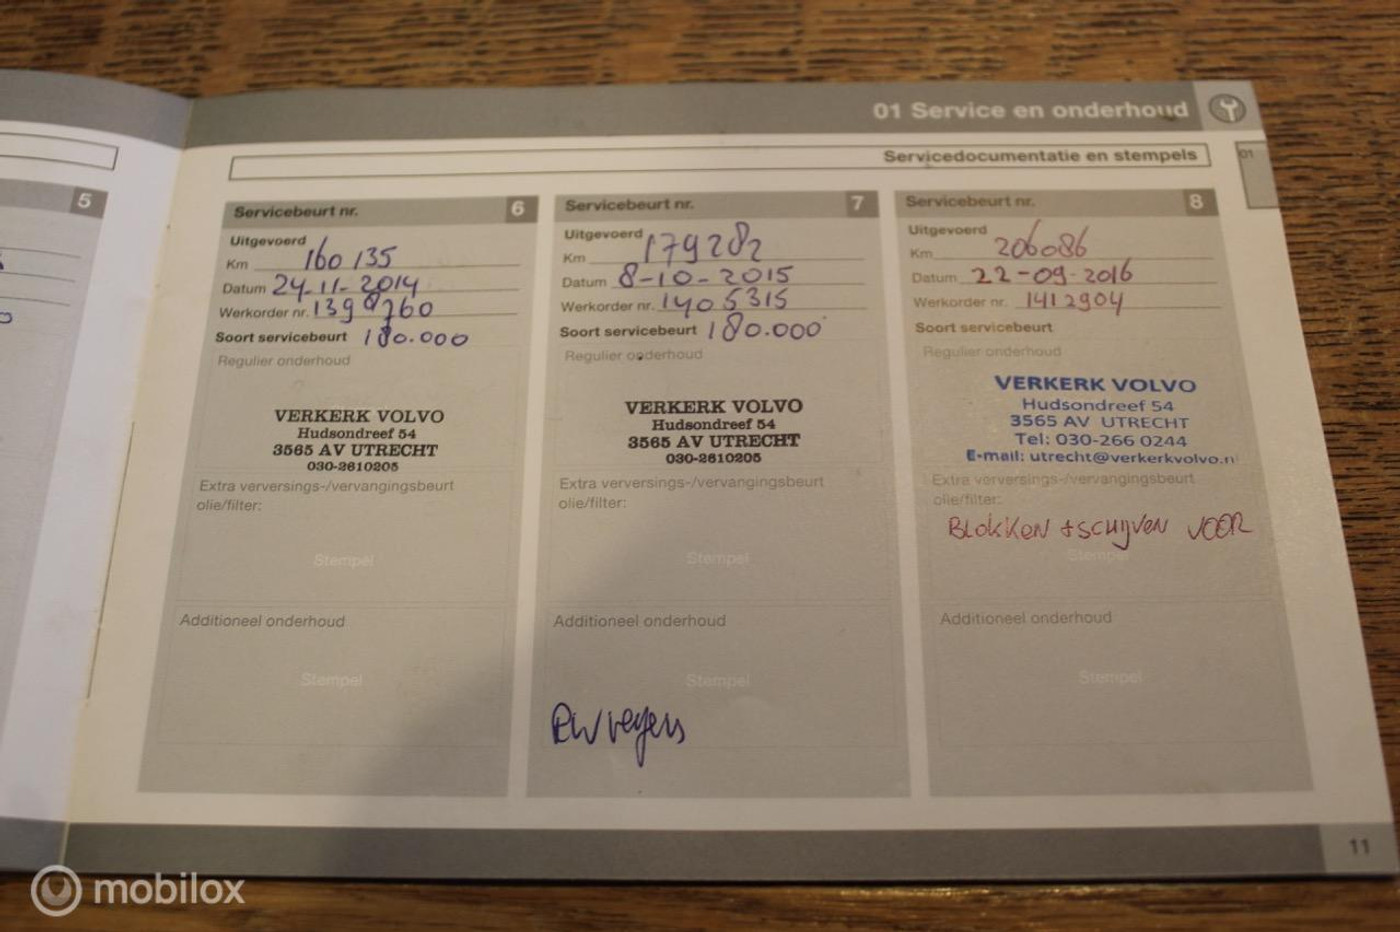 01 Service en onderhoud
Servicedocumentatie en stempels
01
5
Servicebeurt nr. 6
Uitgevoerd
Km 160135
Datum 24-11-2014
Werkorder nr. 1398760
Soort servicebeurt 180.000
Regulier onderhoud
VERKERK VOLVO
Hudsondreef 54
3565 AV UTRECHT
030-2610205
Extra verversings-/vervangingsbeurt
olie/filter:
Stempel
Additioneel onderhoud
Stempel
Servicebeurt nr. 7
Uitgevoerd
Km 179282
Datum 8-10-2015
Werkorder nr. 1405315
Soort servicebeurt 180.000
Regulier onderhoud
VERKERK VOLVO
Hudsondreef 54
3565 AV UTRECHT
030-2610205
Extra verversings-/vervangingsbeurt
olie/filter:
Stempel
Additioneel onderhoud
Stempel
Servicebeurt nr. 8
Uitgevoerd
Km 206086
Datum 22-09-2016
Werkorder nr. 1412904
Soort servicebeurt
Regulier onderhoud
VERKERK VOLVO
Hudsondreef 54
3565 AV UTRECHT
Tel: 030-266 0244
E-mail: utrecht@verkerkvolvo.nl
Extra verversings-/vervangingsbeurt
olie/filter:
BLOKKEN + SCHIJVEN VOOR
Stempel
Additioneel onderhoud
Stempel
11
mobilox